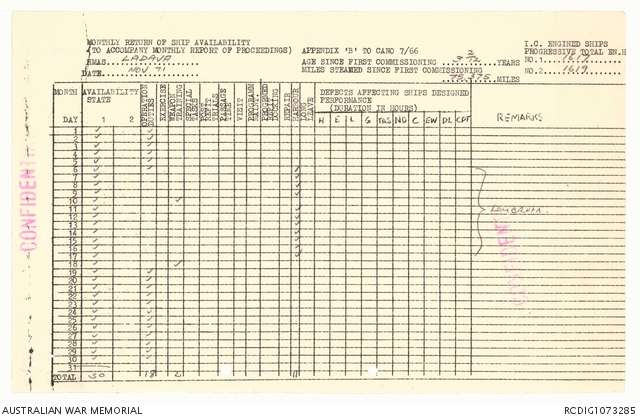 MONTHLY RETURN OF SHIP AVAILABILITY
(TO ACCOMPANY MONTHLY REPORT OF PROCEEDINGS) APPENDIX 'B' TO CANO 7/66
HMAS LADAVA
DATE NOV 71
AGE SINCE FIRST COMMISSIONING YEARS
MILES STEAMED SINCE FIRST COMMISSIONING
MILES
I.C. ENGINED SHIPS
PROGRESSIVE TOTAL EN.H
NO.1 1617
NO.2 1619
MONTH AVAILABILITY STATE
DAY 1 2
OPERATION DUTIES
EXERCISE
WEAPON TRAINING
SPECIAL TASKS
POST REFIT TRIALS
PASSAGE TIME
VISIT
REPAIR
HARBOUR
LONG LEAVE
DEFECTS AFFECTING SHIPS DESIGNED
PERFORMANCE
(DURATION IN HOURS)
H E L G TAS ND C EW DL CPT
REMARKS
1
2
3
4
5
6
7
8
9
10
11
12
13
14
15
16
17
18
19
20
21
22
23
24
25
26
27
28
29
30
31
TOTAL 30 18 2 11
CONFIDENTI
AUSTRALIAN WAR MEMORIAL
RCDIG1073285